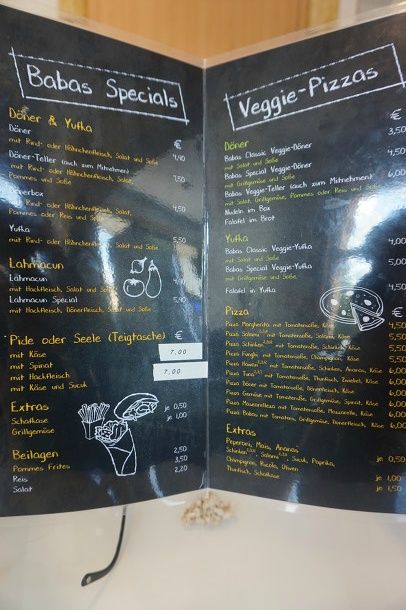 Babas Specials
Döner & Yufka
€
Döner
mit Rind- oder Hähnchenfleisch, Salat und Soße
Döner-Teller (auch zum Mitnehmen)
mit Rind- oder Hähnchenfleisch, Salat,
Pommes und Soße 7,50
mit Rind- oder Hähnchenfleisch,
Pommes oder Reis und Soße 4,50
Yufka
mit Rind- oder Hähnchenfleisch, Salat und Soße 5,50
Lahmacun
Lahmacun
mit Hackfleisch, Salat und Soße
Lahmacun Special
mit Hackfleisch, Dönerfleisch, Salat und Soße
Pide oder Seele (Teigtasche) €
mit Käse 7,00
mit Spinat
mit Hackfleisch 7,00
mit Käse und Sucuk
Extras
Schafkäse je 0,50
Grillgemüse je 1,00
Beilagen
Pommes Frites 2,50
Reis 3,50
Salat 2,20
Veggie-Pizzas
€
Döner 3,50
Babas Classic Veggie-Döner
mit Salat und Soße
Babas Special Veggie-Döner
mit Grillgemüse und Soße
Babas Veggie-Teller (auch zum Mitnehmen)
mit Salat, Grillgemüse, Pommes oder Reis und Soße
Nudeln im Box
Falafel im Brot
Yufka
Babas Classic Veggie-Yufka
mit Salat und Soße
Babas Special Veggie-Yufka
mit Grillgemüse und Soße
Falafel in Yufka
Pizza
Pizza Margherita mit Tomatensoße, Käse
Pizza Salami mit Tomatensoße, Salami, Käse
Pizza Schinken mit Tomatensoße, Schinken, Käse
Pizza Funghi mit Tomatensoße, Champignon, Käse
Pizza Hawaii mit Tomatensoße, Schinken, Ananas, Käse
Pizza Tuna mit Tomatensoße, Thunfisch, Zwiebel, Käse
Pizza Döner mit Tomatensoße, Dönerfleisch, Käse
Pizza Gemüse mit Tomatensoße, Grillgemüse, Spinat, Käse
Pizza Mozzarella mit Tomatensoße, Mozzarella, Käse
Pizza Babas mit Tomatensoße, Grillgemüse, Dönerfleisch, Käse
Extras
Peperoni, Mais, Ananas
Schinken, Salami, Sucuk, Paprika,
Champignons, Rucola, Oliven je 0,50
Thunfisch, Schafkäse je 1,00
je 1,50